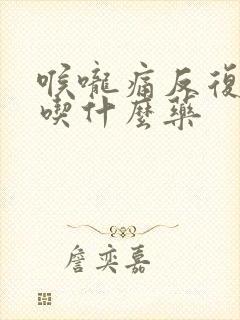 喉嚨痛反復
喫什麼藥
詹奕嘉